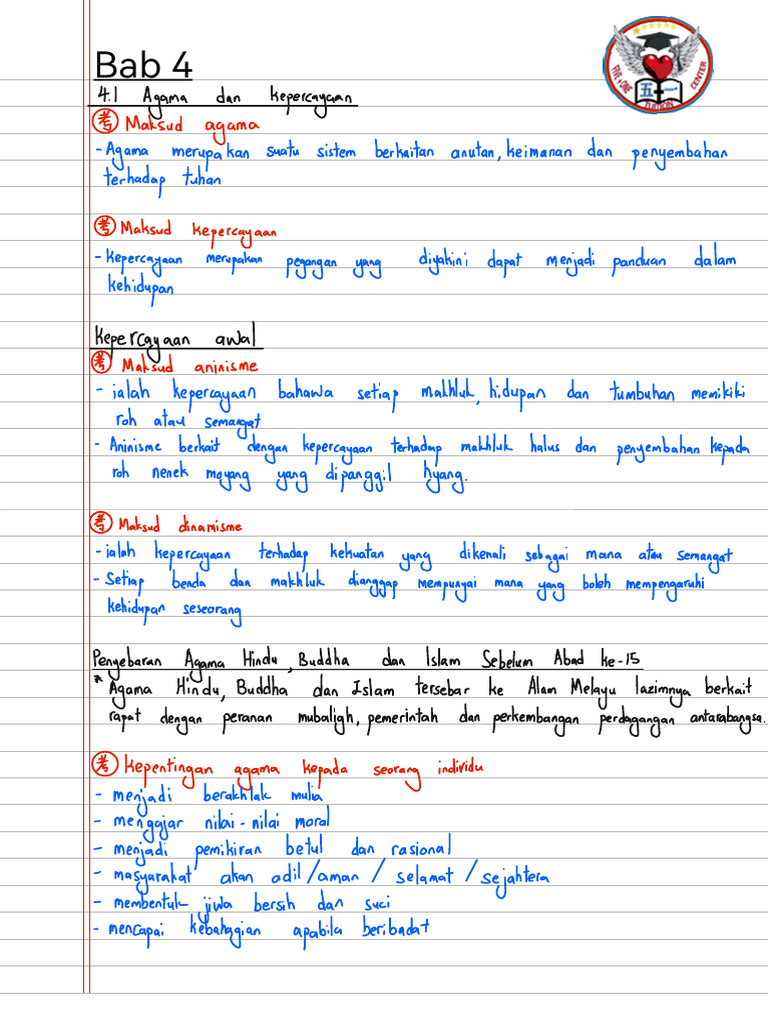 Bab 4
FIVE + ONE
五十一
TUITION
CENTER
4.1 Agama dan kepercayaan
考 Maksud agama
- Agama merupakan suatu sistem berkaitan anutan, keimanan dan penyembahan
terhadap tuhan
考 Maksud kepercayaan
- Kepercayaan merupakan pegangan yang diyakini dapat menjadi panduan dalam
kehidupan
Kepercayaan awal
考 Maksud aninisme
- ialah kepercayaan bahawa setiap makhluk, hidupan dan tumbuhan memikiki
roh atau semangat
- Aninisme berkait dengan kepercayaan terhadap makhluk halus dan penyembahan kepada
roh nenek moyang yang dipanggil hyang.
考 Maksud dinamisme
- ialah kepercayaan terhadap kekuatan yang dikenali sebagai mana atau semangat
- Setiap benda dan makhluk dianggap mempunyai mana yang boleh mempengaruhi
kehidupan seseorang
Penyebaran Agama Hindu, Buddha dan Islam Sebelum Abad ke-15
* Agama Hindu, Buddha dan Islam tersebar ke Alam Melayu lazimnya berkait
rapat dengan peranan mubaligh, pemerintah dan perkembangan perdagangan antarabangsa.
考 Kepentingan agama kepada seorang individu
- menjadi berakhlak mulia
- mengajar nilai-nilai moral
- menjadi pemikiran betul dan rasional
- masyarakat akan adil / aman / selamat / sejahtera
- membentuk jiwa bersih dan suci
- mencapai kebahagian apabila beribadat